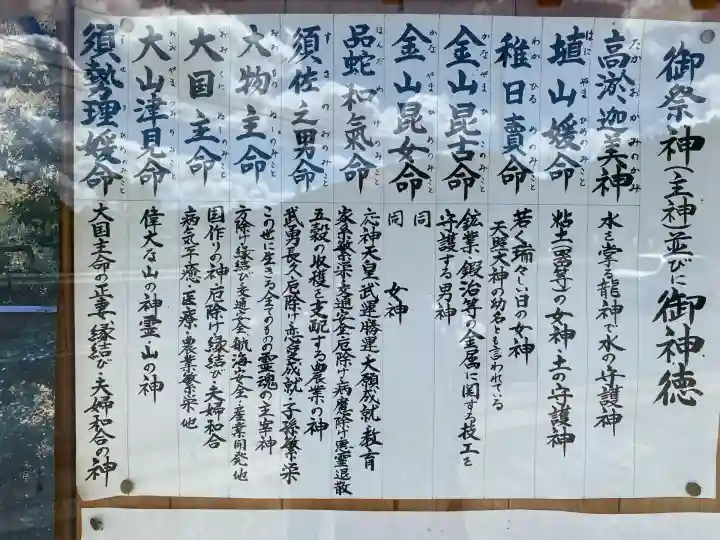 御祭神(主神)並びに御神徳
高淤迦美神 水を掌る龍神で水の守護神
たかおかみのかみ
埴山媛命 粘土(霊等)の女神・土の守護神
はにやまひめのみこと
稚日賣命 若々瑞々しい日の女神
わかひるめのみこと
天照大神の幼名とも言われている
金山昆古命 鉱業・鍛冶等の金属に関する技工を
かなやまひこのみこと
守護する男神
金山昆女命 同
かなやまひめのみこと
同 女神
品蛇和氣命 応神天皇・武運勝運・大願成就・教育
ほんだわけのみこと
家系繁栄・交通安全・厄除け・病魔除け・悪霊退散
須佐之男命 五穀の収穫を支配する農業の神
すさのおのみこと
武勇長久・厄除け・恋愛成就・子孫繁栄
大物主命 この世に生きる全てのものの霊魂の主宰神
おおものぬしのみこと
方除け・縁結び・交通安全・航海安全・産業開発他
大国主命 国作りの神・厄除け・縁結び・夫婦和合
おおくにぬしのみこと
病気平癒・医療・農業繁栄・他
大山津見命 偉大な山の神霊・山の神
おおやまつみのみこと
須勢理媛命 大国主命の正妻・縁結び・夫婦和合の神
すせりひめのみこと